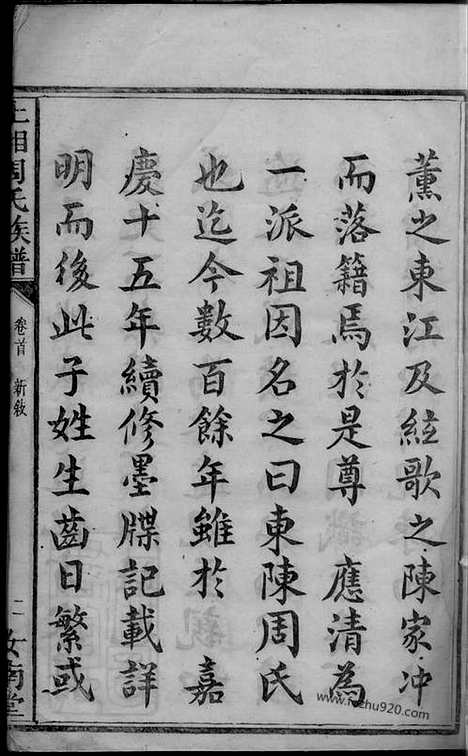 薰之東江及絃歌之陳家冲
而落籍焉於是尊 應清為
一派祖因名之曰東陳周氏
也迄今數百餘年雖於 嘉
慶十五年續修墨牒記載詳
明而後此子姓生齒日繁或
上湘周氏族譜
卷首 新敘
二
汝南堂
www.jiazhu920.com